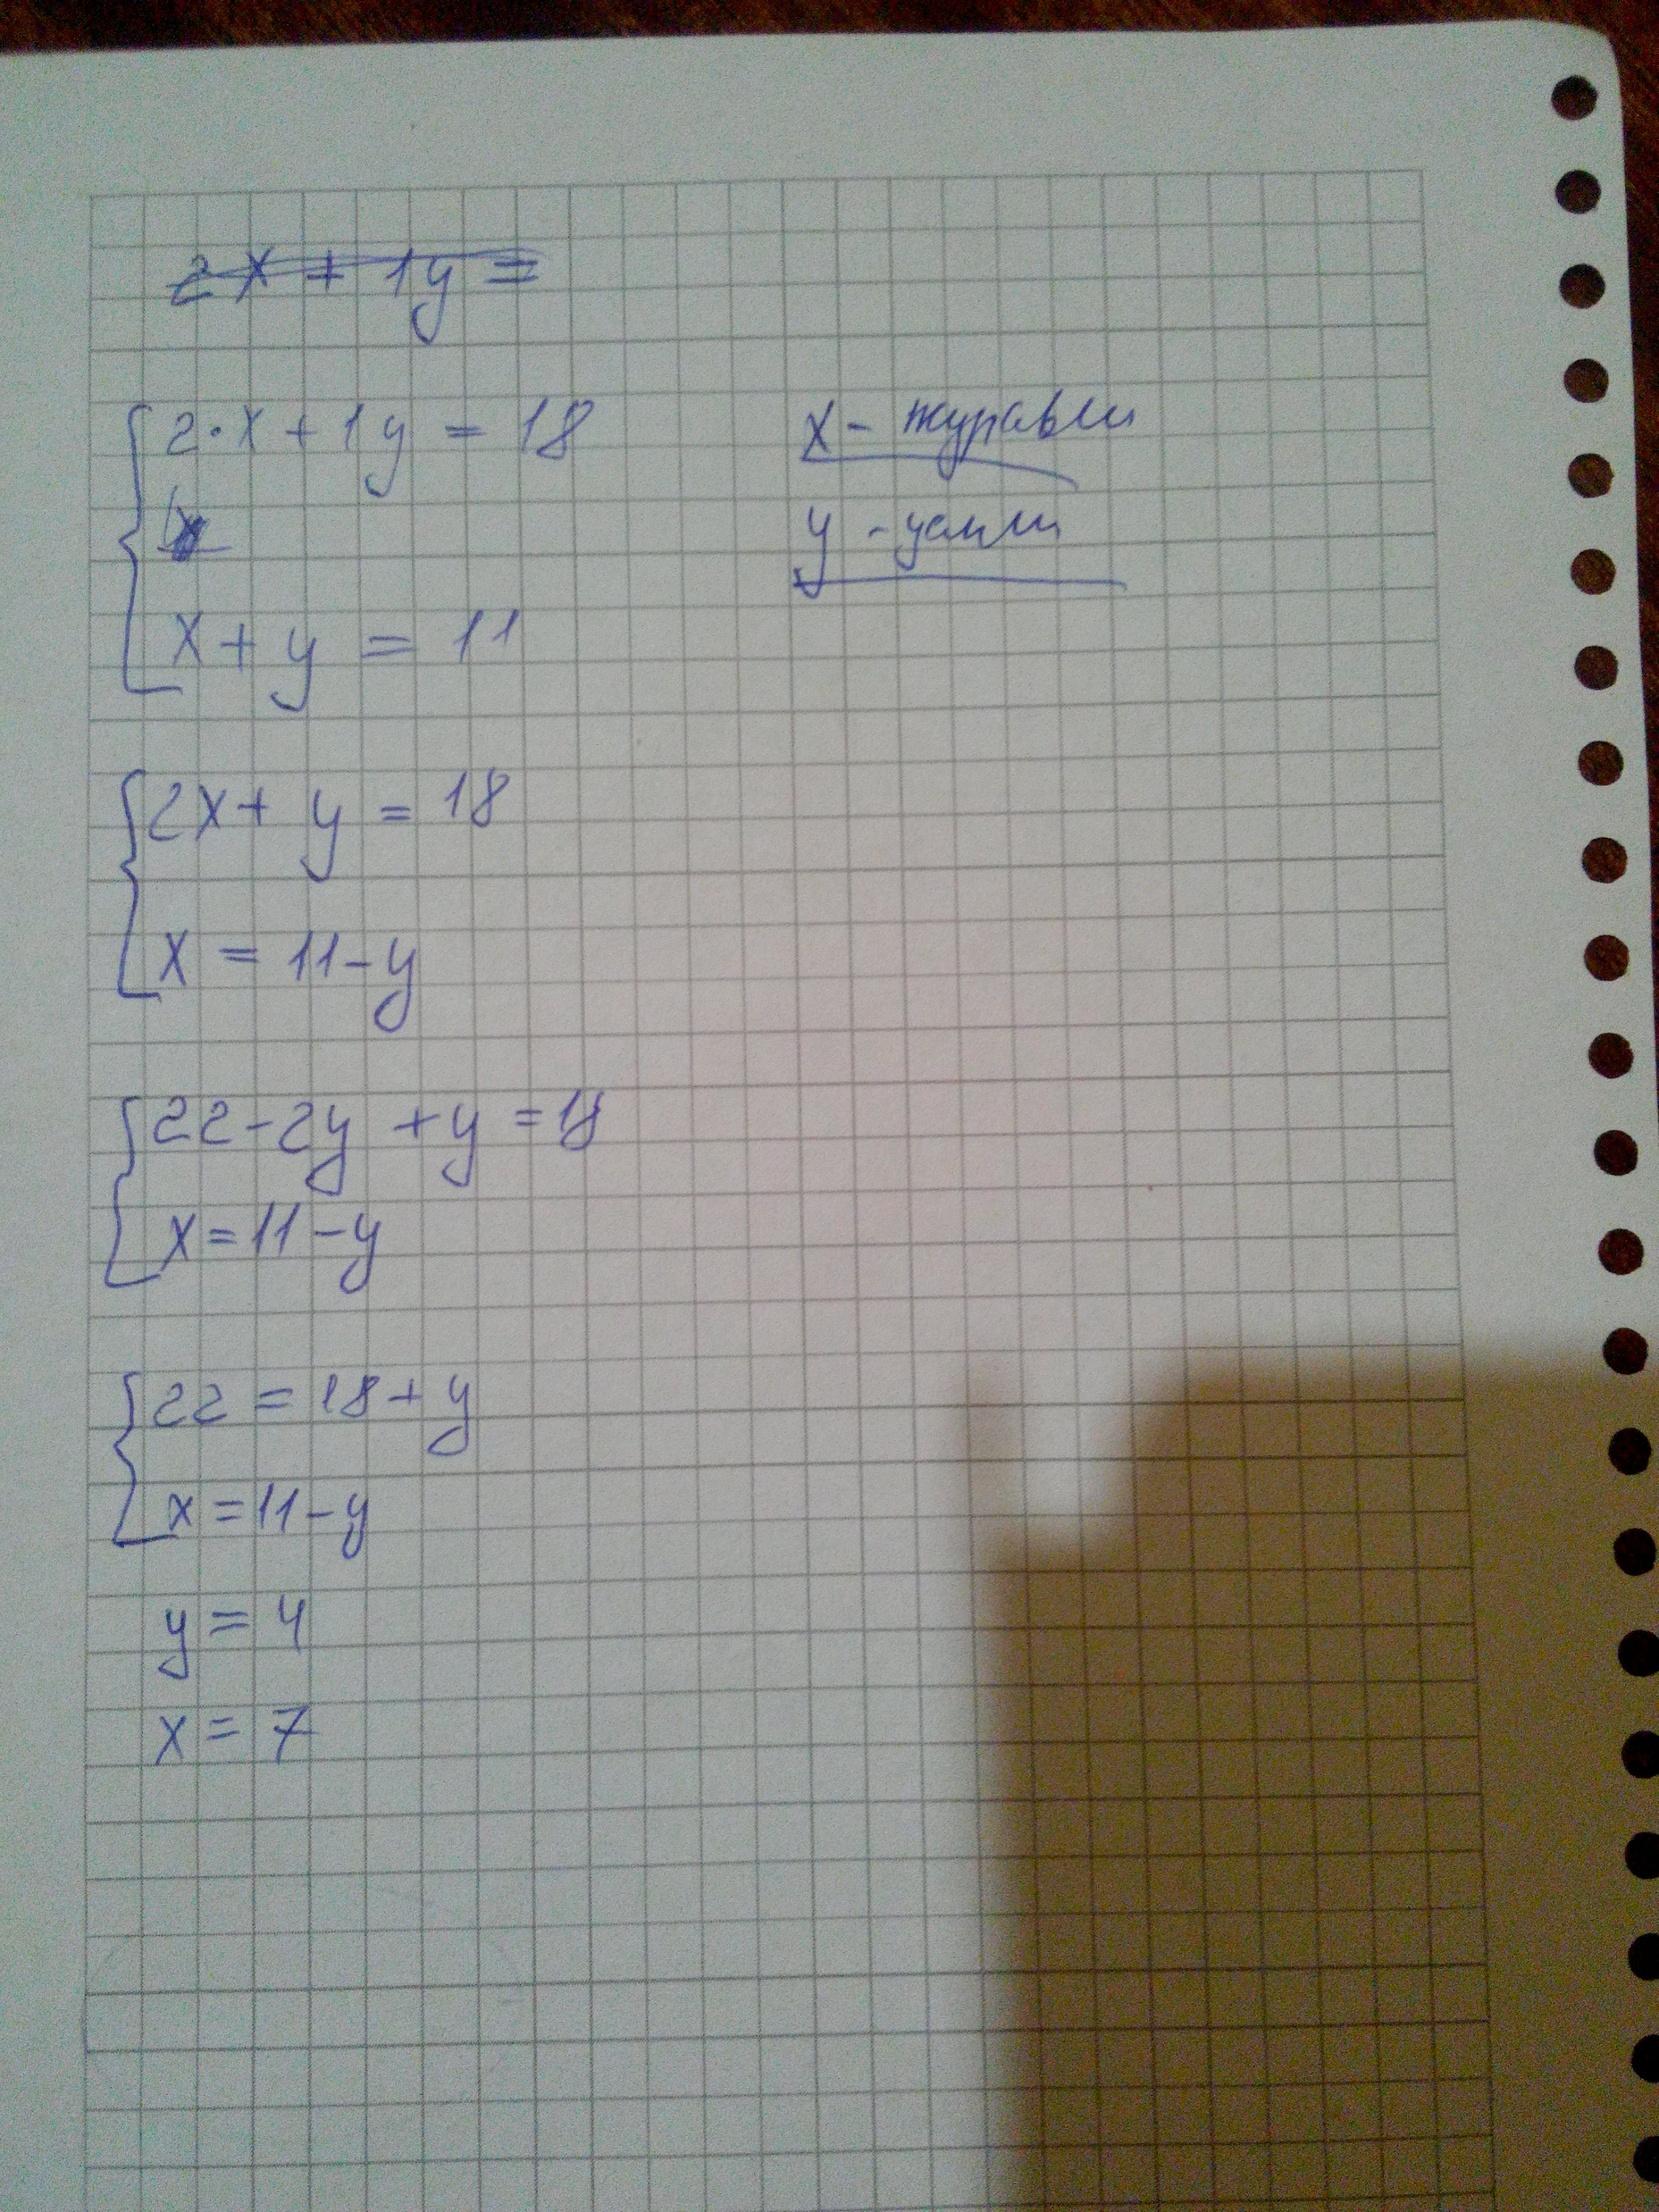 2x + 1y =
2·x + 1y = 18
x - журавли
y - цапли
x + y = 11
2x + y = 18
x = 11 - y
22 - 2y + y = 18
x = 11 - y
22 = 18 + y
x = 11 - y
y = 4
x = 7